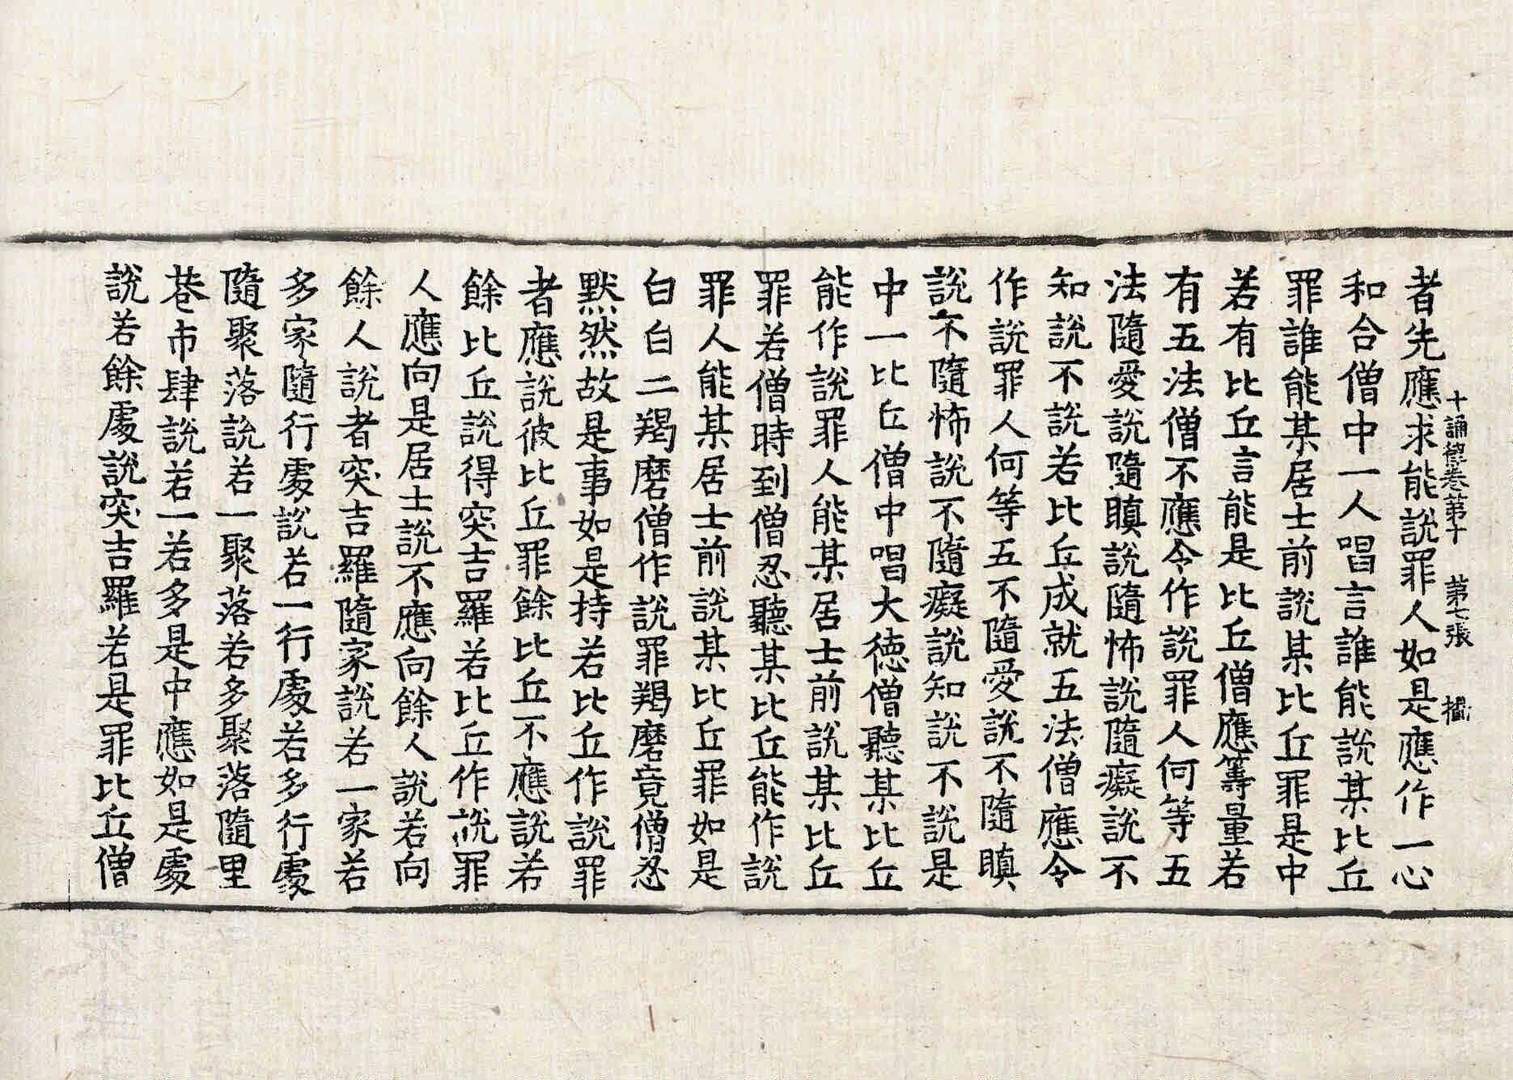 十誦律卷第十 第七張 攝
者先應求能說罪人如是應作一心
和合僧中一人唱言誰能說某比丘
罪誰能某居士前說某比丘罪是中
若有比丘言能是比丘僧應籌量若
有五法僧不應令作說罪人何等五
法隨愛說隨瞋說隨怖說隨癡說不
知說不說若比丘成就五法僧應令
作說罪人何等五不隨愛說不隨瞋
說不隨怖說不隨癡說知說不說是
中一比丘僧中唱大徳僧聽某比丘
能作說罪人能某居士前說某比丘
罪若僧時到僧忍聽某比丘能作說
罪人能某居士前說某比丘罪如是
白白二羯磨僧作說罪羯磨竟僧忍
默然故是事如是持若比丘作說罪
者應說彼比丘罪餘比丘不應說若
餘比丘說得突吉羅若比丘作說罪
人應向是居士說不應向餘人說若向
餘人說者突吉羅隨家說若一家若
多家隨行處說若一行處若多行處
隨聚落說若一聚落若多聚落隨里
巷市肆說若一若多是中應如是處
說若餘處說突吉羅若是罪比丘僧